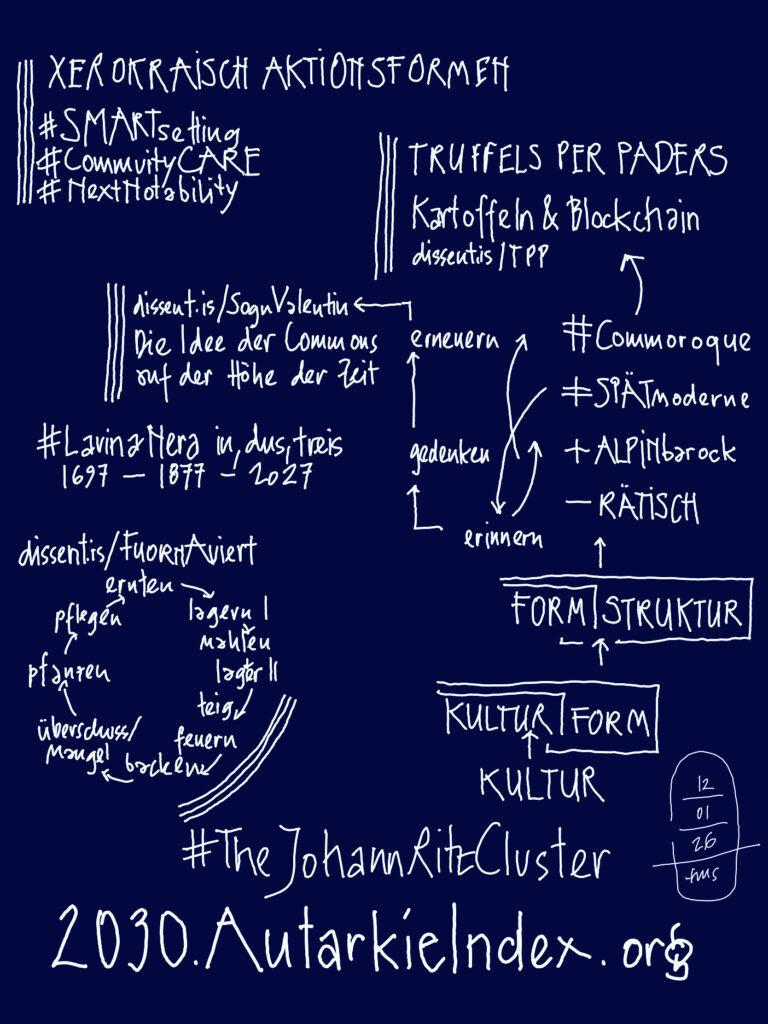 XEROKRAISCH AKTIONSFORMEN
#SMARTsetting
#CommunityCARE
#NextNotability
TRUFFELS PER PADERS
Kartoffeln & Blockchain
dissent.is/TPP
dissent.is/SognValentin
Die Idee der Commons
auf der Höhe der Zeit
erneuern
gedenken
erinnern
#Commoroque
#SPÄTmoderne
+ALPINbarock
—RÄTISCH
#LavinaNera in,dus,treis
1697 — 1877 — 2027
dissent.is/FUORNAviert
ernten
lagern I
mahlen
lager II
teig
feuern
backen
überschuss/
Mangel
pflanzen
pflegen
FORM|STRUKTUR
KULTUR|FORM
KULTUR
12
01
26
fms
#TheJohannRitzCluster
2030.AutarkieIndex.org